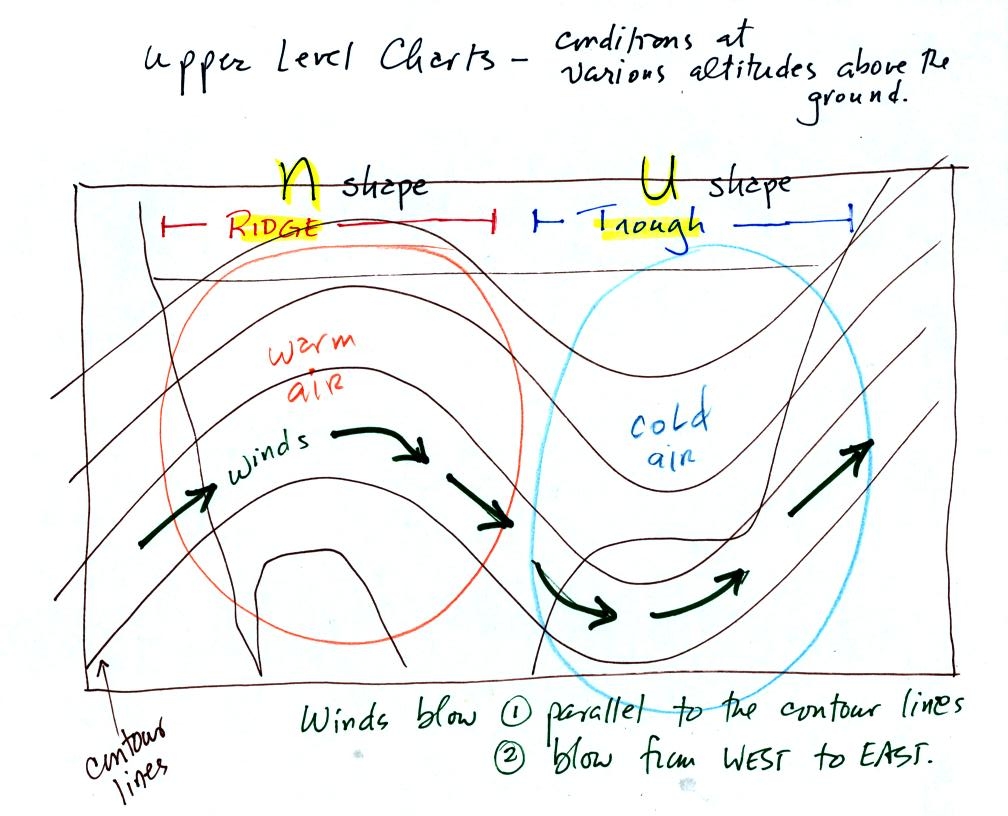 Upper Level Charts - conditions at
various altitudes above the
ground.
n shape
U shape
RIDGE
Trough
warm
air
winds
cold
air
Winds blow ① parallel to the contour lines
② blow from WEST to EAST.
contour
lines